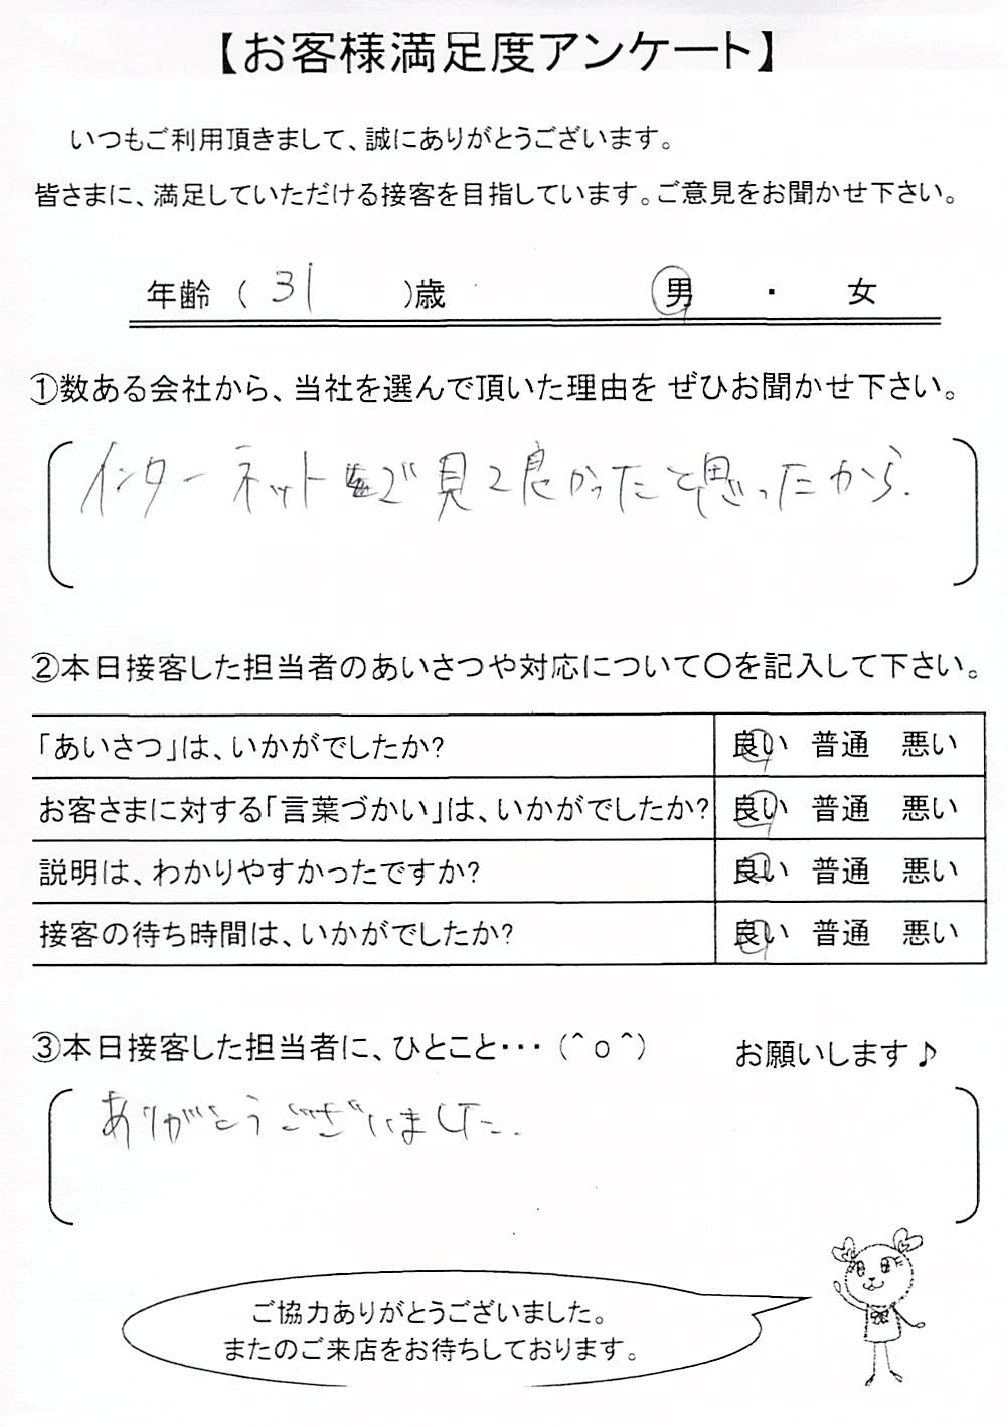 【お客様満足度アンケート】
いつもご利用頂きまして、誠にありがとうございます。
皆さまに、満足していただける接客を目指しています。ご意見をお聞かせ下さい。
年齢 ( 31 )歳 男 ・ 女
①数ある会社から、当社を選んで頂いた理由を ぜひお聞かせ下さい。
インターネットで見て良かったと思ったから.
②本日接客した担当者のあいさつや対応について〇を記入して下さい。
「あいさつ」は、いかがでしたか? 良い 普通 悪い
お客さまに対する「言葉づかい」は、いかがでしたか? 良い 普通 悪い
説明は、わかりやすかったですか? 良い 普通 悪い
接客の待ち時間は、いかがでしたか? 良い 普通 悪い
③本日接客した担当者に、ひとこと・・・(^o^) お願いします♪
ありがとうございました.
ご協力ありがとうございました。
またのご来店をお待ちしております。